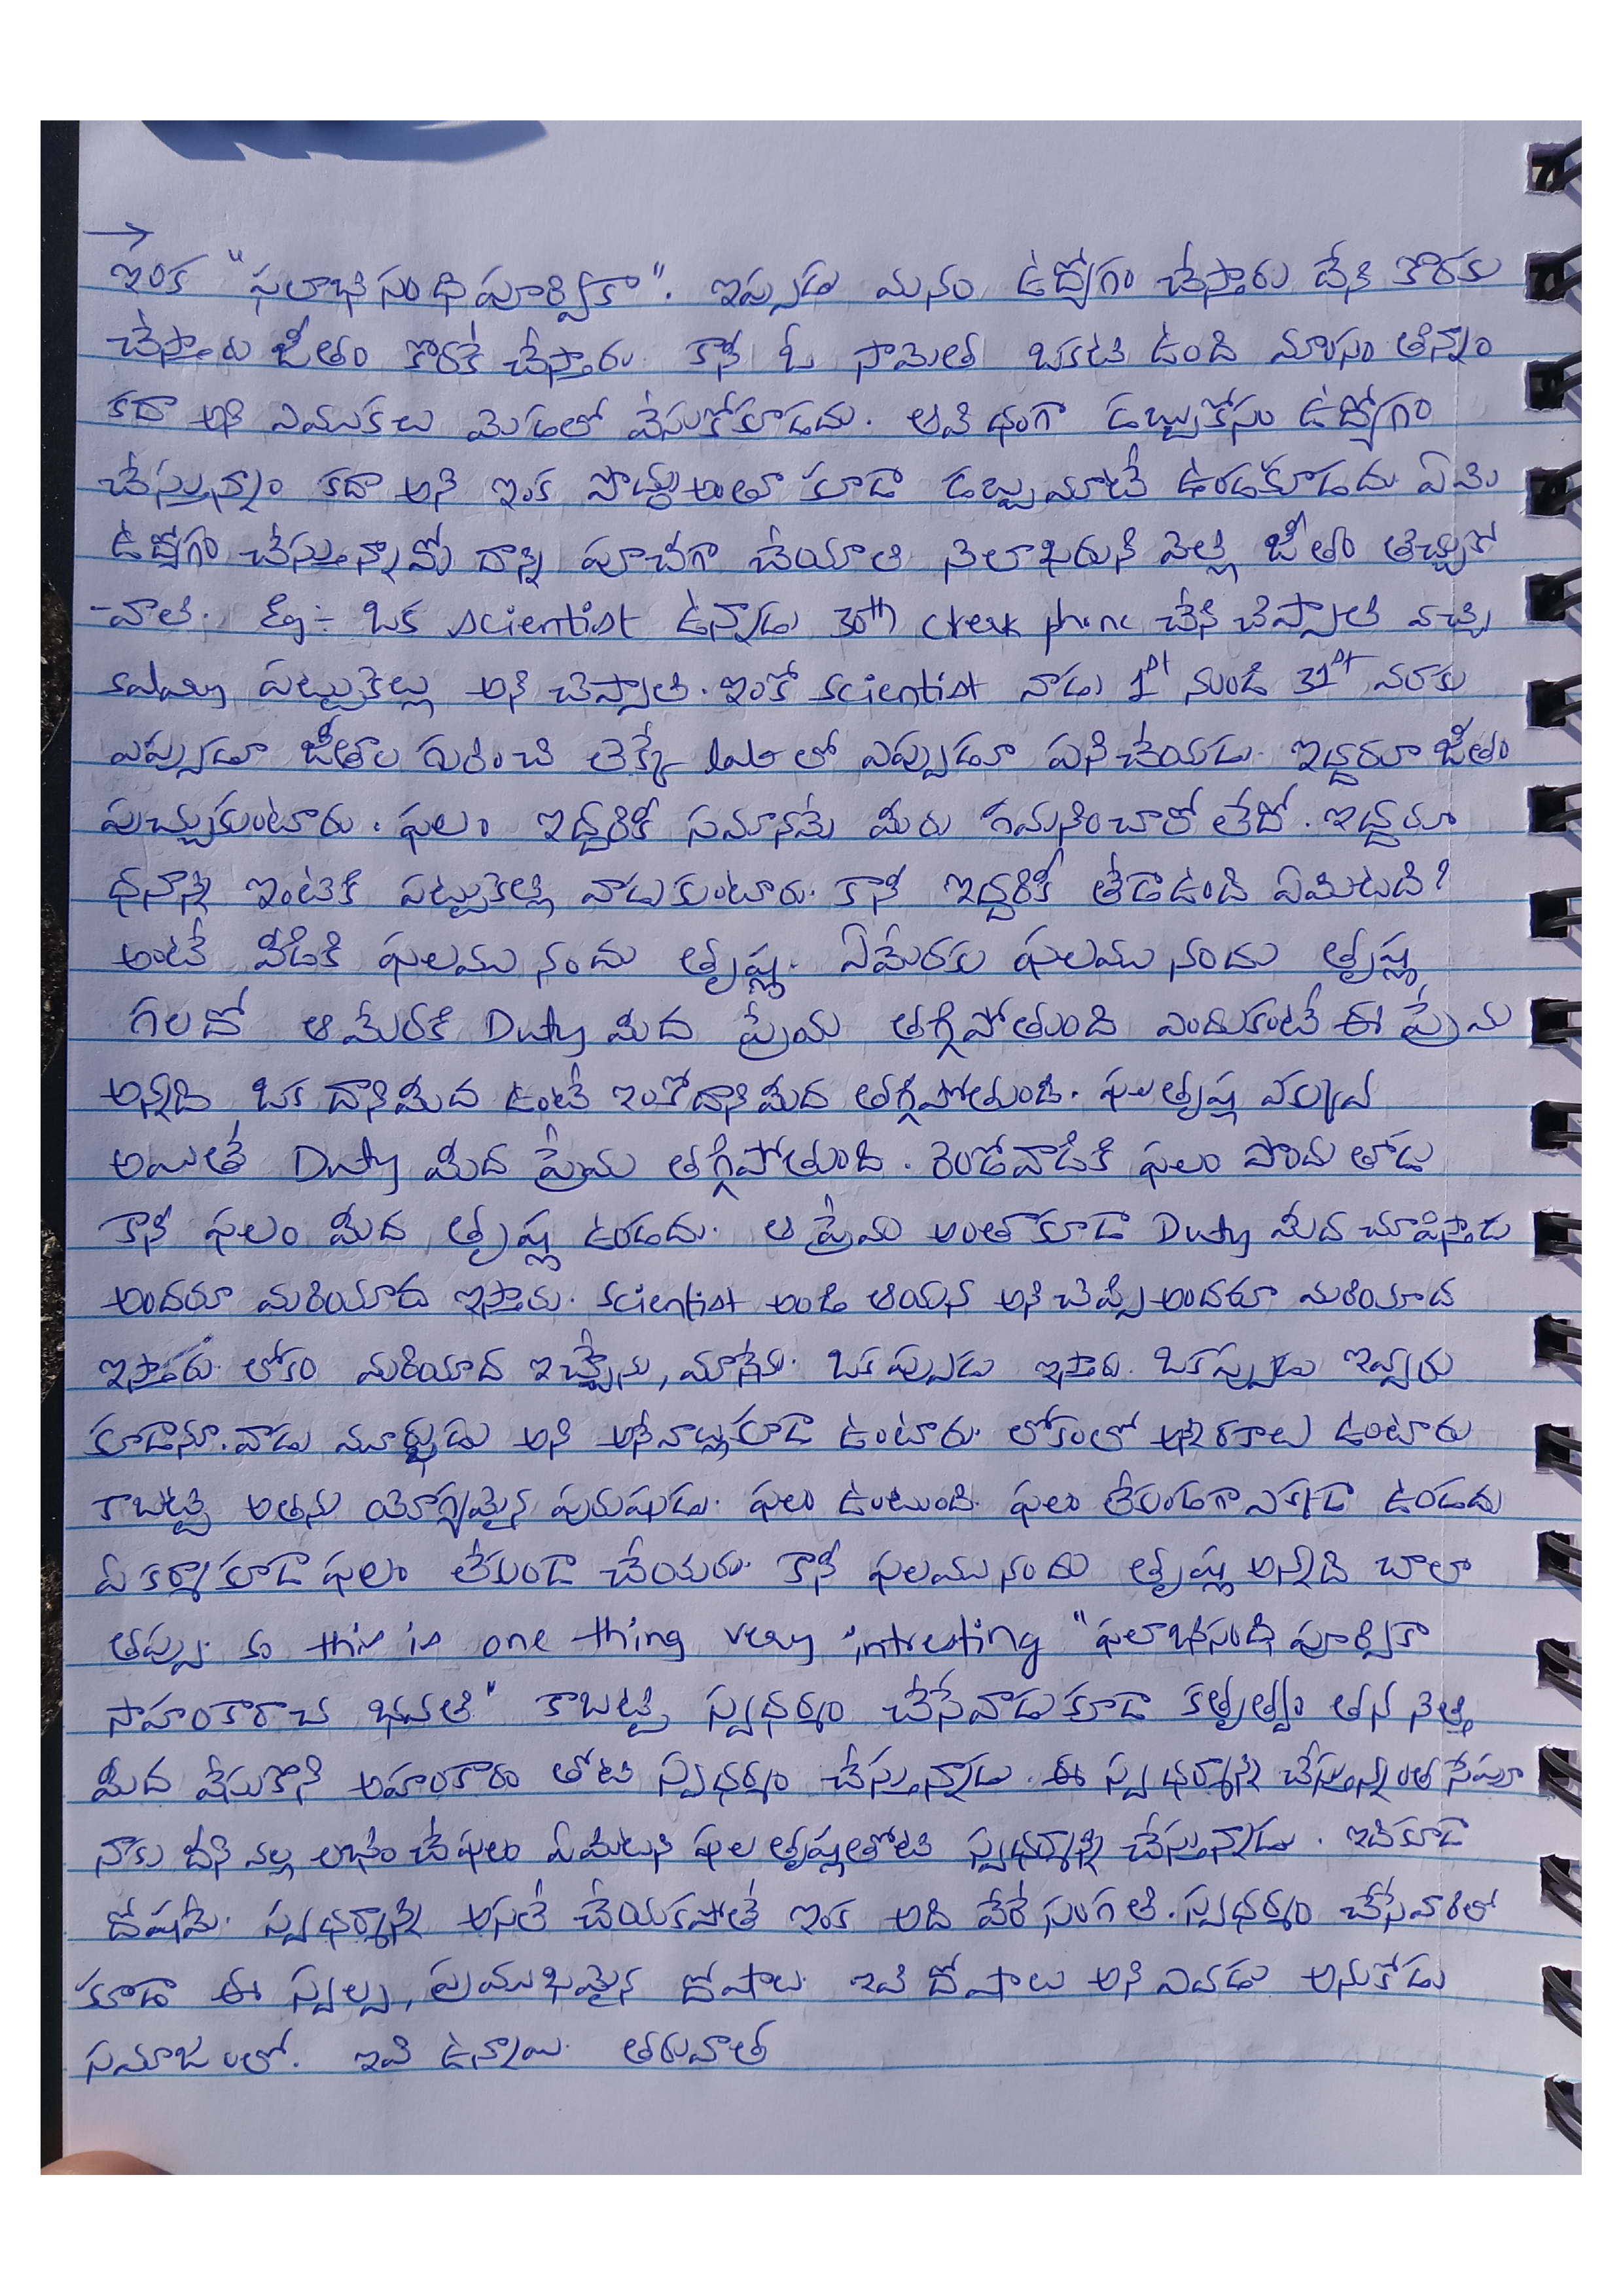 →
ఇంక "ఫలాభిసంధి పూర్వికా". ఇప్పుడు మనం ఉద్యోగం చేస్తారు దేని కొరకు
చేస్తారు జీతం కొరకే చేస్తారు. కానీ ఓ సామెత ఒకటి ఉంది మాంసం తిన్నాం
కదా అని ఎముకలు మెడలో వేసుకోకూడదు. ఆవిధంగా డబ్బుకోసం ఉద్యోగం
చేస్తున్నాం కదా అని ఇంక పొద్దు అంతా కూడా డబ్బు మాటే ఉండకూడదు ఏమి
ఉద్యోగం చేస్తున్నావో దాన్ని పూర్తిగా చేయాలి నెలాఖరుని వెళ్లి జీతం తెచ్చుకో
-వాలి. Eg:- ఒక scientist ఉన్నాడు 30th phone చేసి చెప్పాలి వచ్చి
salary పట్టుకెళ్లు అని చెప్పాలి. ఇంకో scientist వాడు 1st నుండి 31st వరకు
ఎప్పుడూ జీతాల గురించి లెక్కే lab లో ఎప్పుడూ పనిచేయడు. ఇద్దరూ జీతం
పుచ్చుకుంటారు. ఫలం ఇద్దరికీ సమానమే మీరు గమనించారో లేదో. ఇద్దరూ
ధనాన్ని ఇంటికి పట్టుకెళ్లి వాడుకుంటారు. కానీ ఇద్దరికీ తేడా ఉంది ఏమిటది?
అంటే వీడికి ఫలము నందు తృష్ణ. ఏమేరకు ఫలము నందు తృష్ణ
గలదో ఆ మేరకి Duty మీద ప్రేమ తగ్గిపోతుంది ఎందుకంటే ఈ ప్రేమ
అన్నది ఒక దానిమీద ఉంటే ఇంకోదానిమీద తగ్గిపోతుంది. ఫలతృష్ణ ఎక్కువ
అయితే Duty మీద ప్రేమ తగ్గిపోతుంది. రెండోవాడికి ఫలం పొందుతాడు
కానీ ఫలం మీద తృష్ణ ఉండదు. ఆ ప్రేమ అంతా కూడా Duty మీద చూపిస్తాడు
అందరూ మరియాద ఇస్తారు. scientist అండి ఆయన అని చెప్పి అందరూ మరియాద
ఇస్తారు. లోకం మరియాద ఇచ్చేను, మానేను. ఒకప్పుడు ఇస్తారు. ఒకప్పుడు ఇవ్వరు
కూడాను. వాడు మూర్ఖుడు అని అనేవాళ్లు కూడా ఉంటారు. లోకంలో అన్ని రకాలు ఉంటారు
కాబట్టి అతను యోగ్యమైన పురుషుడు. ఫలం ఉంటుంది. ఫలం లేకుండగా ఎక్కడా ఉండదు
ఏ కర్మా కూడా ఫలం లేకుండా చేయరు. కానీ ఫలము నందు తృష్ణ అన్నది చాలా
తప్పు. so this is one thing very intresting "ఫలాభిసంధి పూర్వికా
సాహంకారాచ భవతి" కాబట్టి స్వధర్మం చేసేవాడు కూడా కర్తృత్వం తన నెత్తి
మీద వేసుకొని అహంకారం తోటి స్వధర్మం చేస్తున్నాడు. ఈ స్వధర్మాన్ని చేస్తున్నంత సేపూ
నాకు దీని వల్ల లభించే ఫలం ఏమిటని ఫల తృష్ణతోటి స్వధర్మాన్ని చేస్తున్నాడు. ఇది కూడా
దోషమే. స్వధర్మాన్ని అసలే చేయకపోతే ఇంక అది వేరే సంగతి. స్వధర్మం చేసేవారిలో
కూడా ఈ స్వల్ప, ప్రముఖమైన దోషాలు. ఇవి దోషాలు అని ఎవడు అనుకోడు
సమాజంలో. ఇవి ఉన్నాయి. తరువాత